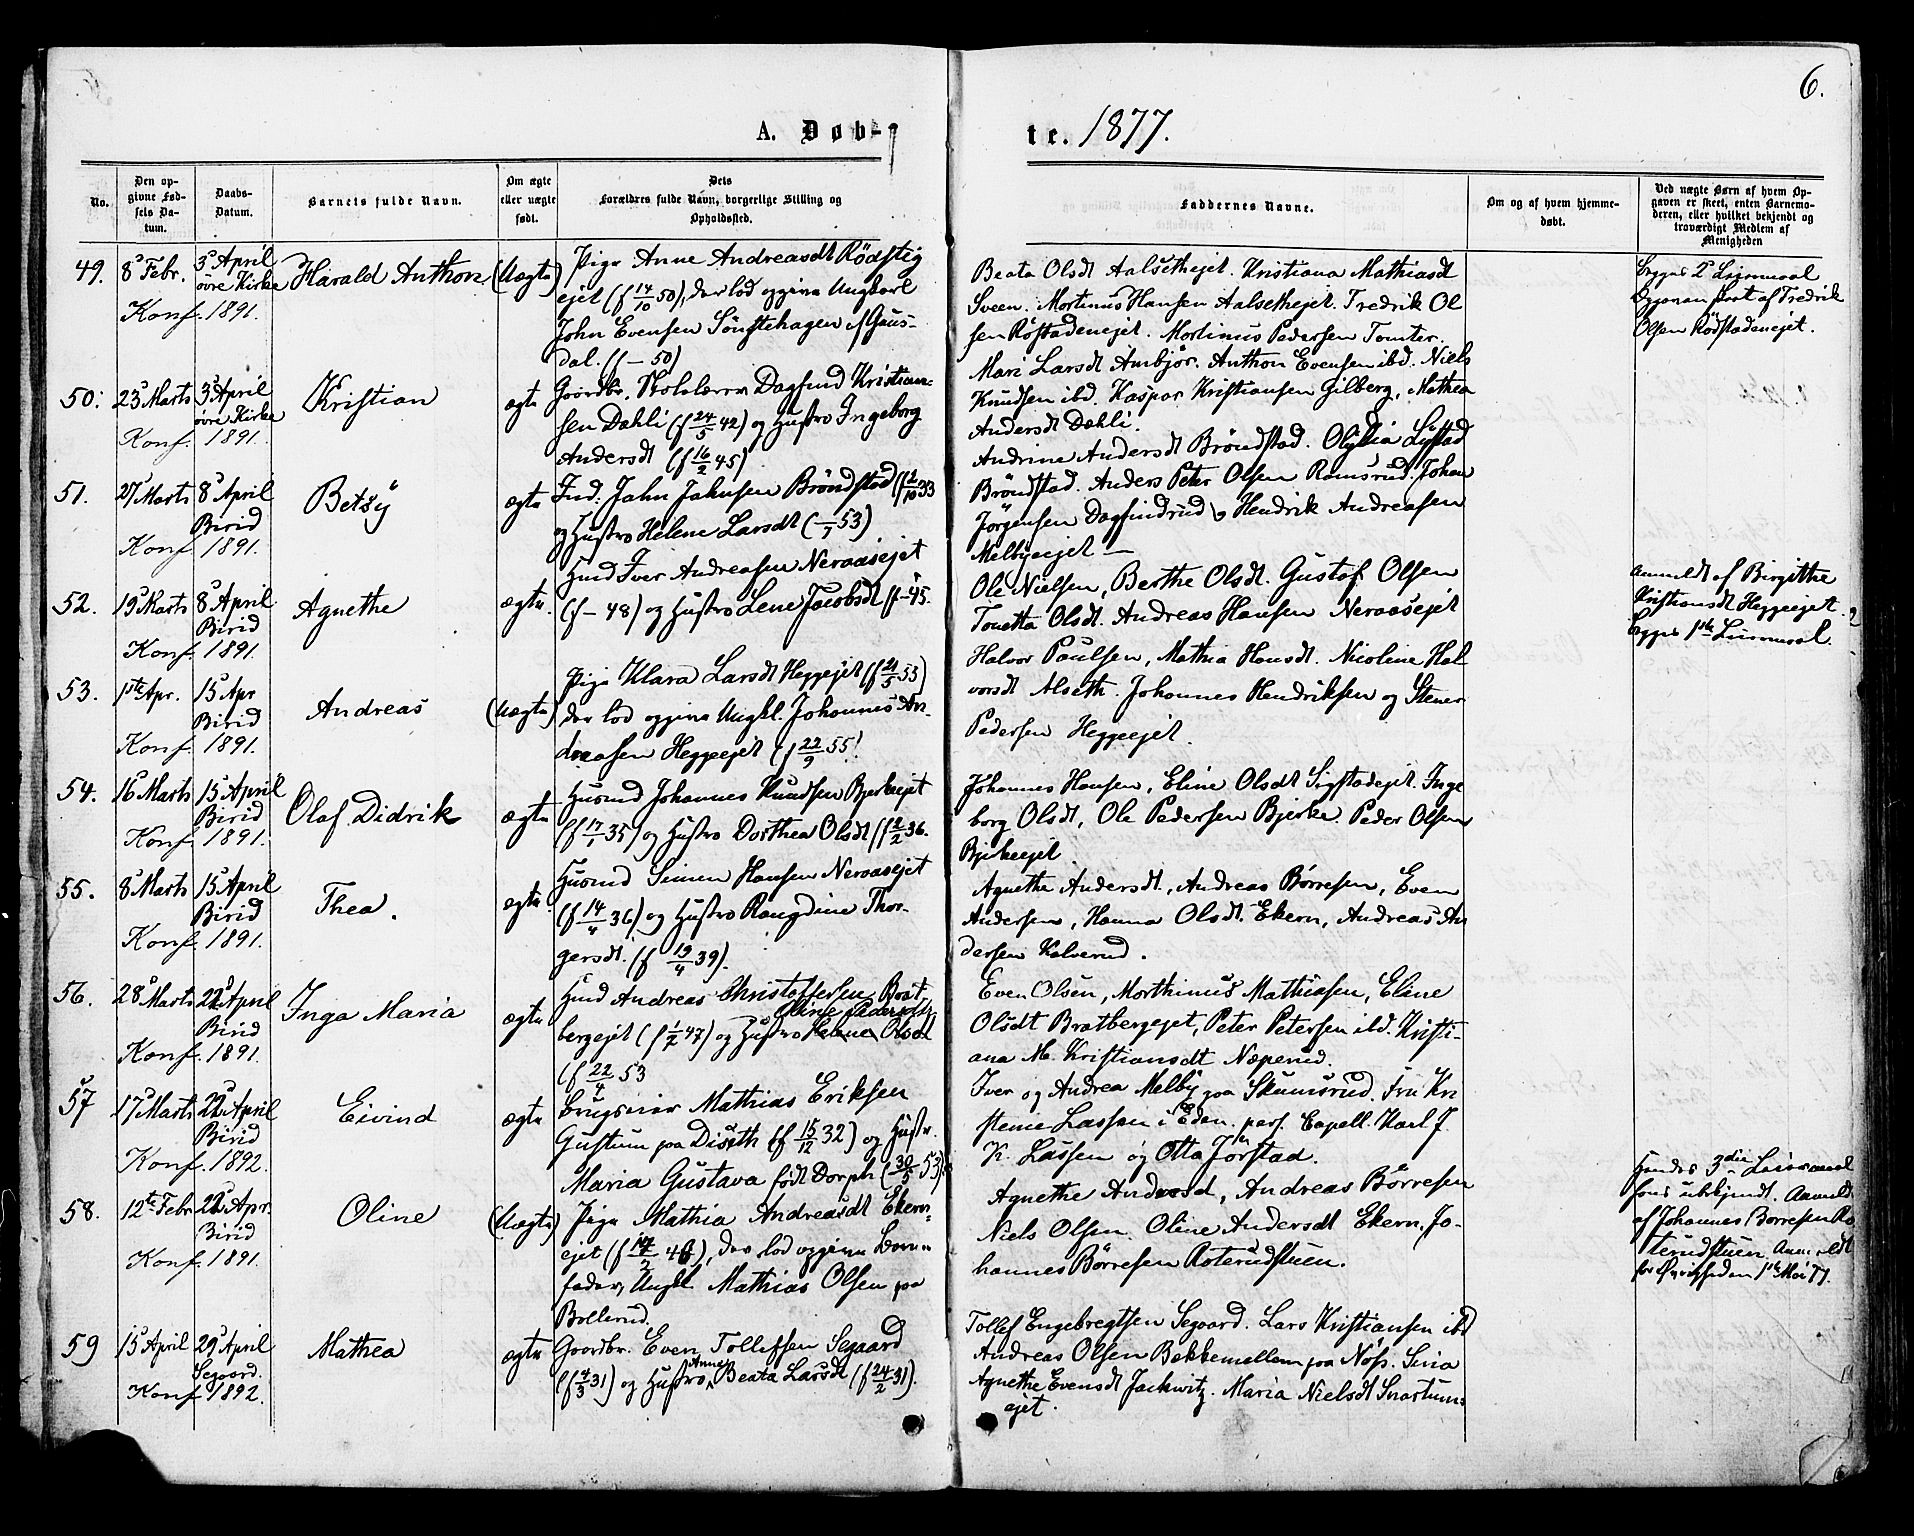 6.
A. Døb-
te. 1877.
No.
Den op-
givne Fød-
sels Da-
tum.
Daabs-
Datum.
Barnets fulde Navn.
Om ægte
eller uægte
født.
Dets
Forældres fulde Navn, borgerlige Stilling og
Opholdssted.
Faddernes Navne.
Om og af hvem hjemme-
døbt.
Ved uægte Børn af hvem Op-
gaven er skeet, enten Barnemo-
deren, eller hvilket bekjendt og
troværdigt Medlem af
Menigheden
49. 8 Febr. 3 April
øvre Kirke
Konf. 1891.
Harald Anthon
(Uægte)
Pige Anne Andreasdt Rödstig
ejet (f 14/10 50), der lod opgive Ungkarl
John Evensen Sönstehagen i Gaus-
dal. (f - 50)
Beata Olsdt Aalsethejet. Kristiana Mathiasdt
Sveen. Mortinus Hansen Aalsethejet. Fredrik Ol
sen Röstadenejet. Mortinus Pedersen Tomter.
Begges 2 Leiermaal
Opgaven skeet af Fredrik
Olsen Rödstadenejet.
50. 23 Marts 3 April
øvre Kirke
Konf. 1891.
Kristian
ægte
Gaardbr. Skolelærer Dagfind Kristian-
sen Dahli (f 24/5 42) og Hustro Ingeborg
Andersdt (f 16/2 45)
Mari Larsdt Ambjör. Anthon Evensen ibd. Niels
Knudsen ibd. Kaspar Kristiansen Gilberg, Mathea
Andersdt Dahli.
51. 27 Marts 8 April
Birid
Konf. 1891.
Betsy
ægte
Ind. John Johnsen Bröndstad (f 2/10 33
og Hustro Helene Larsdt (-/7 53)
Andrine Andersdt Bröndstad. Olydia Lystad
Bröndstad. Anders Peter Olsen Ramsrud. Johan
Jørgensen Dagfindrud og Hendrik Andreasen
Melbyeejet —
52. 19 Marts 8 April
Birid
Konf. 1891.
Agnethe
ægte.
Hmd Iver Andreasen Neraasejet
(f - 48) og Hustro Lene Jacobsdt (f - 45.
Ole Nielsen, Berthe Olsdt. Gustof Olsen
Tonetta Olsdt. Andreas Hansen Neraasejet
53. 1ste Apr. 15 Apr
Birid
Konf. 1891.
Andreas
(Uægte)
Pige Klara Larsdt Heggeejet (f 21/5 53)
der lod opgive Ungkl. Johannes An-
dreasen Heggeejet (f 22/9 55)
Halvor Paulsen, Mathia Hansdt. Nicoline Hal
vorsdt Alseth. Johannes Hendriksen og Stener
Pedersen Heggeejet.
Anmeldt af Birgitthe
Kristiansdt Heggeejet.
Begges 1ste Leiermaal.
54. 16 Marts 15 April
Birid
Konf. 1891.
Olaf Didrik
ægte
Husmd Johannes Knudsen Bjerkeejet
(f 17/1 35) og Hustro Dorthea Olsdt (f 2/2 36.
Johannes Hansen, Eline Olsdt Sigstadejet. Inge
borg Olsdt, Ole Pedersen Bjerke. Peder Olsen
Bjerkeejet.
55. 8 Marts 15 April
Birid
Konf. 1891.
Thea.
ægte.
Husmd Simen Hansen Neraasejet
(f 14/4 36) og Hustro Rangdine Thor-
gersdt. (f 19/4 39).
Agnethe Andersdt., Andreas Børresen, Even
Andersen, Hanna Olsdt. Ekern, Andreas An
dersen Kalverud.
56. 28 Marts 22 April
Birid
Konf. 1891.
Inga Maria
ægte
Hmd Andreas Christoffersen Brat-
Oline Pedersdt.
bergejet (f 1/2 47) og Hustro Helene Olsdt
(f 22/4 53
Even Olsen, Morthinus Mathiasen, Eline
Olsdt Bratbergejet, Peter Petersen ibd. Kristi-
ana M. Kristiansdt Næperud.
57 17 Marts 22 April
Birid
Konf. 1892.
Eivind
ægte
Brugseier Mathias Eriksen
Gustum paa Diseth (f 15/12 32) og Hustr.
Maria Gustava født Dorph (30/5 53)
Iver og Andrea Melby paa Skumsrud. Fru Kri
stine Lassen i Eden. pers. Capell. Karl J.
K. Lassen og Otta Jørstad.
58. 12te Febr 22 Apr.
Birid
Konf. 1891.
Oline
(Uægte)
Pige Mathia Andreasdt Ekern-
ejet (f 17/2 46), der lod opgive Barne-
fader, Ungkl Mathias Olsen paa
Bollerud.
Agnethe Andersd, Andreas Börresen
Niels Olsen. Oline Andersdt Ekern. Jo-
hannes Börresen Roterudstuen.
Hendes 3die Leiermaal
hans ubekjendt. Anmeldt
af Johannes Borresen Ro
terudstuen. Anmeldt
for Øvrigheden 1ste Mai 77.
59 15 April 29 April
Segaard.
Konf. 1892.
Mathea
ægte
Gaardbr. Even Tollefsen Segaard
Anne
(f 4/3 31) og Hustro Beata Larsdt (f 24/2 31).
Tollef Engebregtsen Segaard. Lars Kristiansen ibd
Andreas Olsen Bekkemellem paa Næss. Sina
Agnethe Evensdt Jackwitz. Maria Nielsdt Snartum-
ejet.